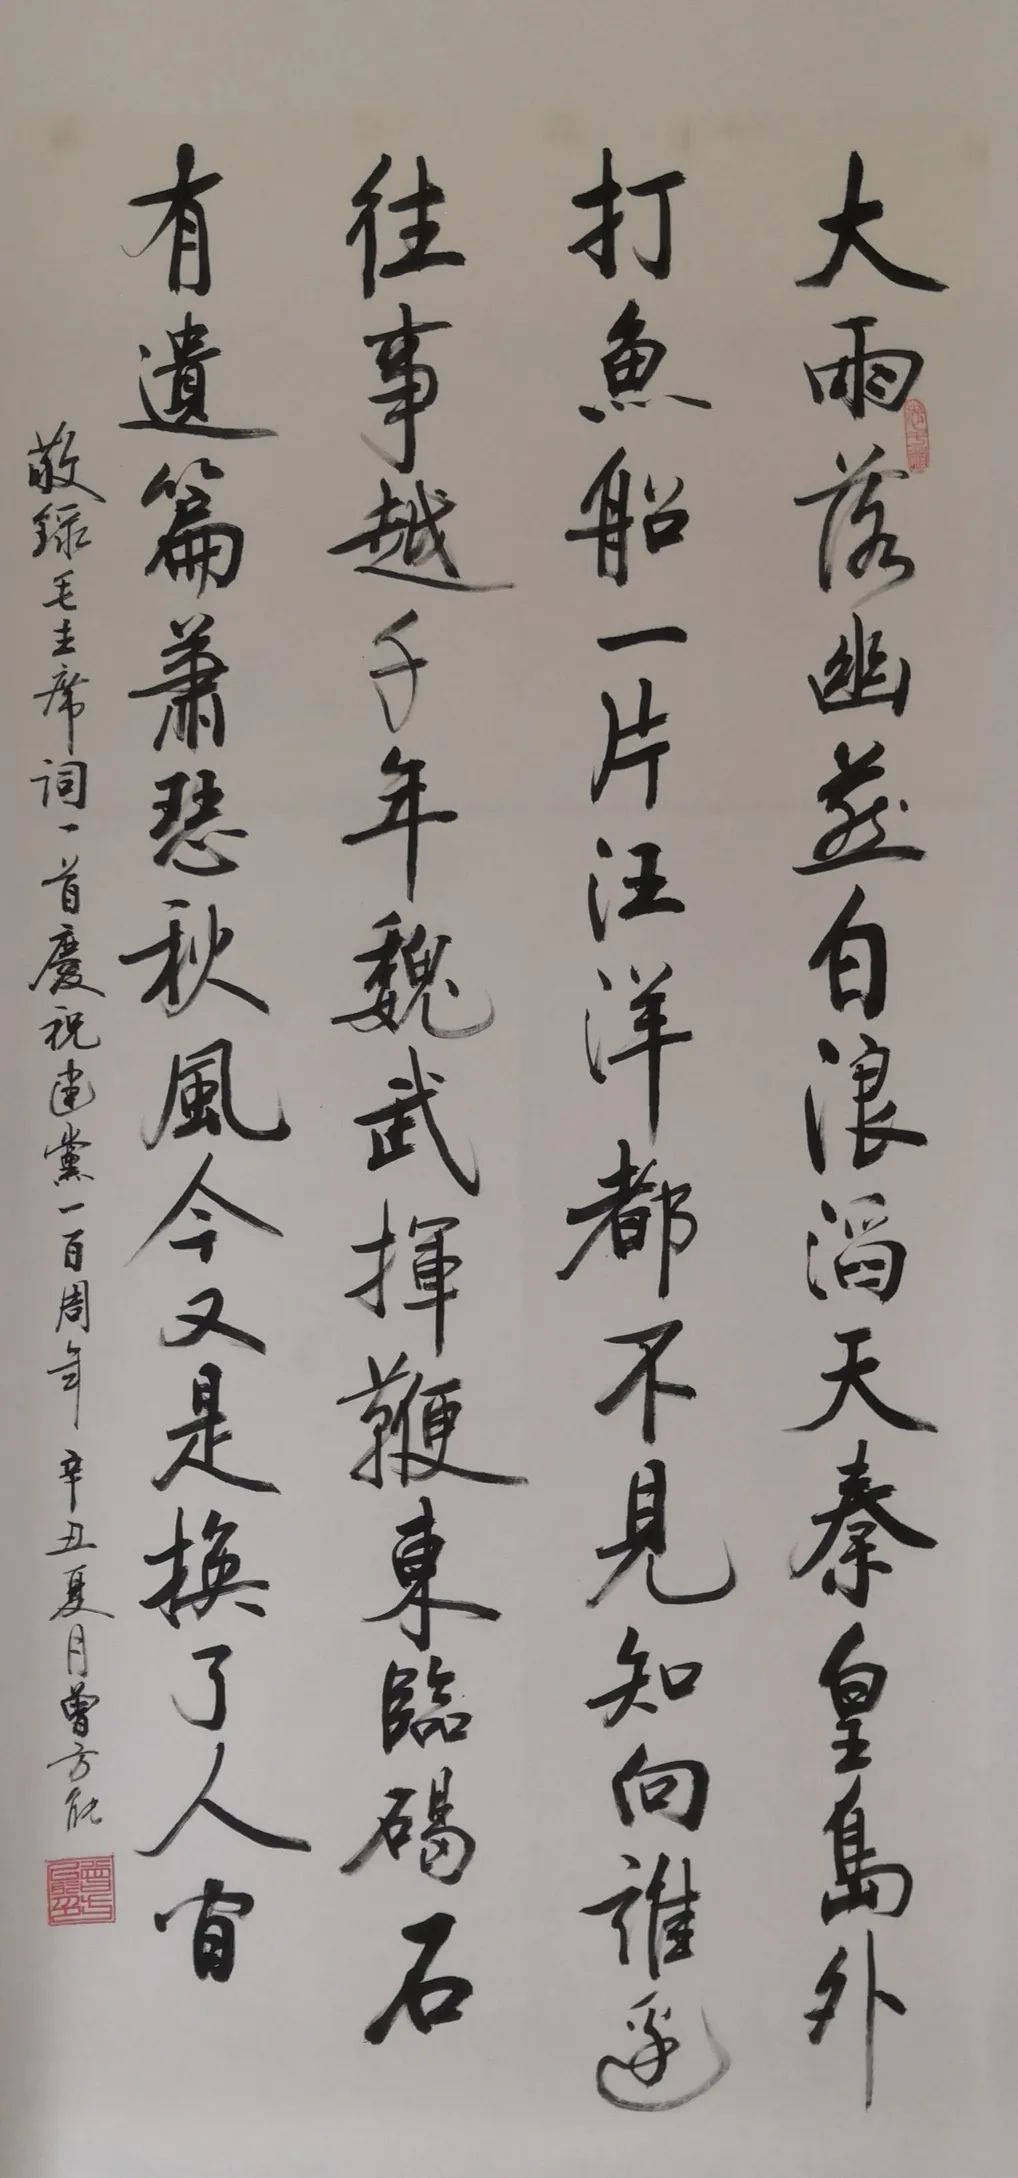 大雨落幽燕白浪滔天秦皇島外
打魚船一片汪洋都不見知向誰邊
往事越千年魏武揮鞭東臨碣石
有遺篇蕭瑟秋風今又是換了人間
敬錄毛主席詞一首慶祝建黨一百周年辛丑夏月曾方能